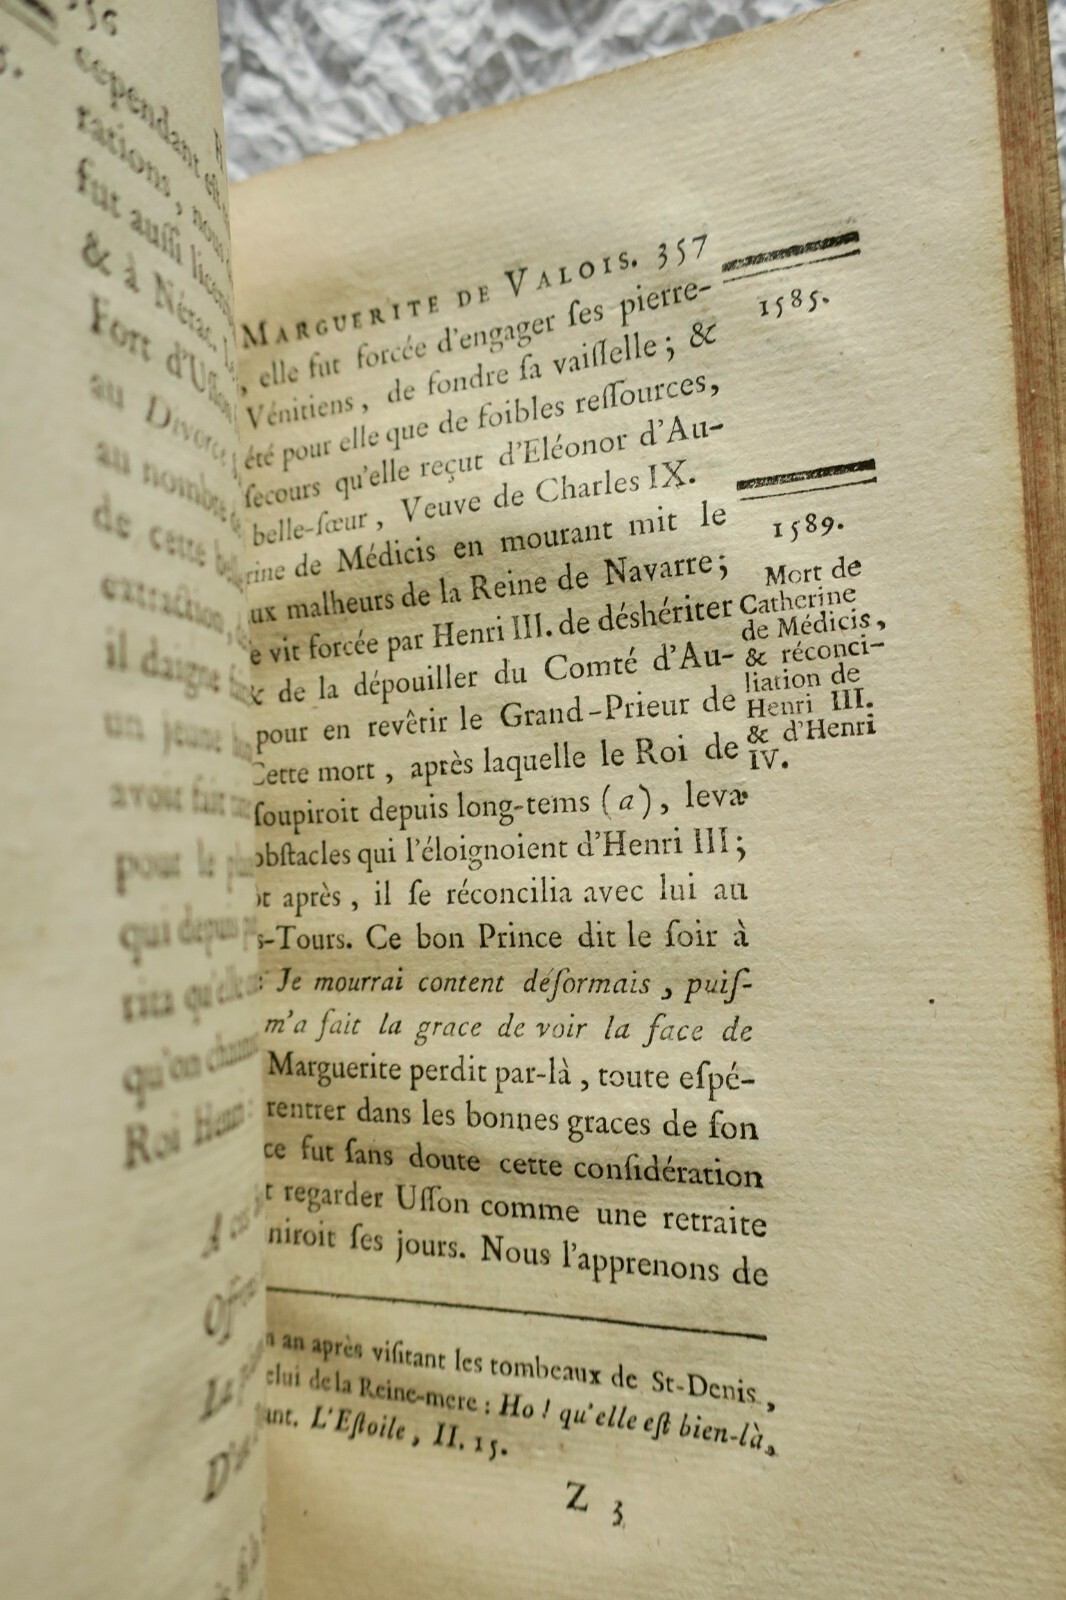 356
cependant
rations, nous
fut auſſi
& à Nérac,
Fort d'Uſſon
au Divorce
au nombre
de cette
extraction,
il daigna
un jeune
avoit fait
pour le
qui depuis
rita qu'elle
qu'on
Roi Henri
MARGUERITE DE VALOIS. 357
1585.
, elle fut forcée d'engager ſes pierre-
Vénitiens, de fondre ſa vaiſſelle; &
été pour elle que de foibles reſſources,
ſecours qu'elle reçut d'Eléonor d'Au-
belle-ſœur, Veuve de Charles IX.
rine de Médicis en mourant mit le
ux malheurs de la Reine de Navarre;
e vit forcée par Henri III. de déshériter
& de la dépouiller du Comté d'Au-
pour en revêtir le Grand-Prieur de
Cette mort, après laquelle le Roi de
ſoupiroit depuis long-tems (a), leva
obſtacles qui l'éloignoient d'Henri III;
ôt après, il ſe réconcilia avec lui au
s-Tours. Ce bon Prince dit le ſoir à
: Je mourrai content déſormais, puiſ-
m'a fait la grace de voir la face de
Marguerite perdit par-là, toute eſpé-
rentrer dans les bonnes graces de ſon
ce fut ſans doute cette conſidération
t regarder Uſſon comme une retraite
niroit ſes jours. Nous l'apprenons de
1589.
Mort de
Catherine
de Médicis,
& réconci-
liation de
Henri III.
& d'Henri
IV.
n an après viſitant les tombeaux de St-Denis,
elui de la Reine-mere: Ho! qu'elle eſt bien-là,
ant. L'Eſtoile, II. 15.
Z 3